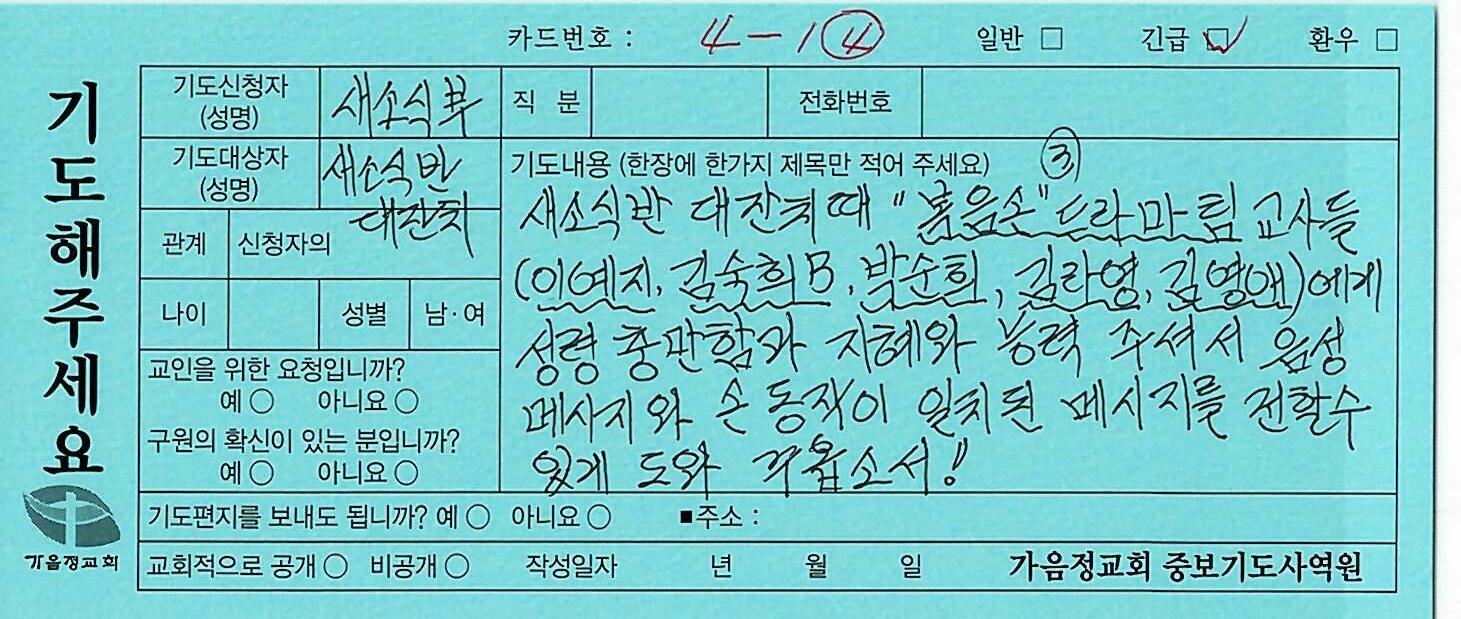 카드번호 : 4-1④ 일반 □ 긴급 ☑ 환우 □
기도해주세요
기도신청자 (성명) 새소식부 직 분 전화번호
기도대상자 (성명) 새소식반 대잔치
관계 신청자의
나이 성별 남·여
교인을 위한 요청입니까?
예 ○ 아니요 ○
구원의 확신이 있는 분입니까?
예 ○ 아니요 ○
기도내용 (한장에 한가지 제목만 적어 주세요) ③
새소식반 대잔치때 "복음손" 드라마팀 교사들
(인예지, 김숙희B, 박순희, 김라영, 김영애)에게
성령 충만함과 지혜와 능력 주셔서 음성
메시지와 손 동작이 일치된 메시지를 전할수
있게 도와 주옵소서!
기도편지를 보내도 됩니까? 예 ○ 아니요 ○ ■주소 :
교회적으로 공개 ○ 비공개 ○ 작성일자 년 월 일 가음정교회 중보기도사역원
가음정교회